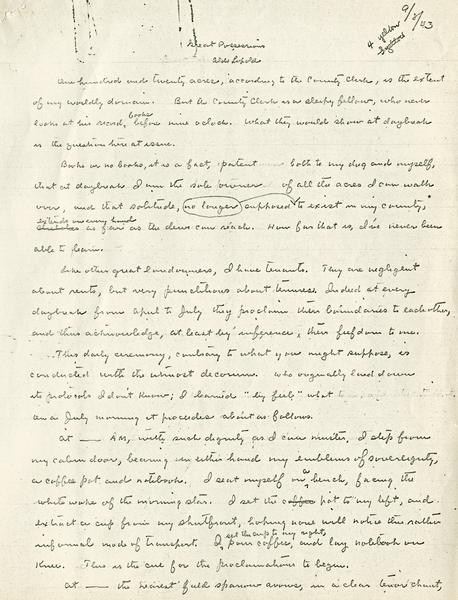 9/8/43
4 yellow
Great Possessions
Aldo Leopold
One hundred and twenty acres, according to the County Clerk, is the extent
of my worldly domain. But the County Clerk is a sleepy fellow, who never
looks at his record books before nine oclock. What they would show at daybreak
is the question here at issue.
Books or no books, it is a fact, patent both to my dog and myself,
that at daybreak I am the sole owner of all the acres I can walk
over, and that solitude, no longer supposed to exist in my county,
extends on every hand
as far as the dews can reach. How far that is, I've never been
able to learn.
Like other great landowners, I have tenants. They are negligent
about rents, but very punctilious about tenures. Indeed at every
daybreak from April to July they proclaim their boundaries to each other,
and thus acknowledge, at least by inference, their fiefdom to me.
This daily ceremony, contrary to what you might suppose, is
conducted with the utmost decorum. Who originally laid down
its protocols I don't know; I learned "by feel" what
on a July morning it proceeds about as follows.
At — AM, with such dignity as I can muster, I step from
my cabin door, bearing in either hand my emblems of sovereignty,
a coffee pot and notebook. I seat myself on a bench, facing the
white wake of the morning star. I set the pot to my left, and
extract a cup from my shirtfront, hoping none will notice the rather
informal mode of transport. I set the cup to my right, pour coffee, and lay notebook on
knee. This is the cue for the proclamations to begin.
At — the nearest field sparrow avows, in a clear tenor chant,